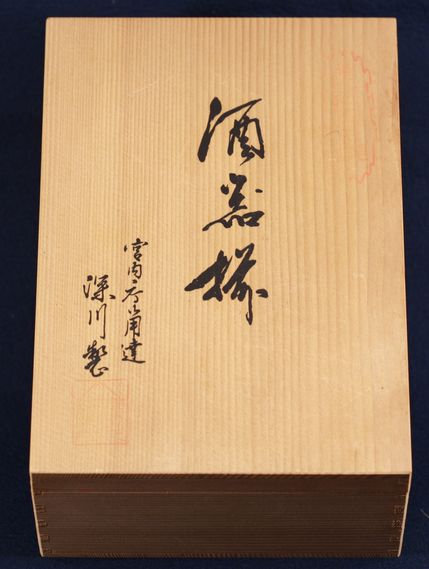 酒器揃
宮内庁御用達
深川製